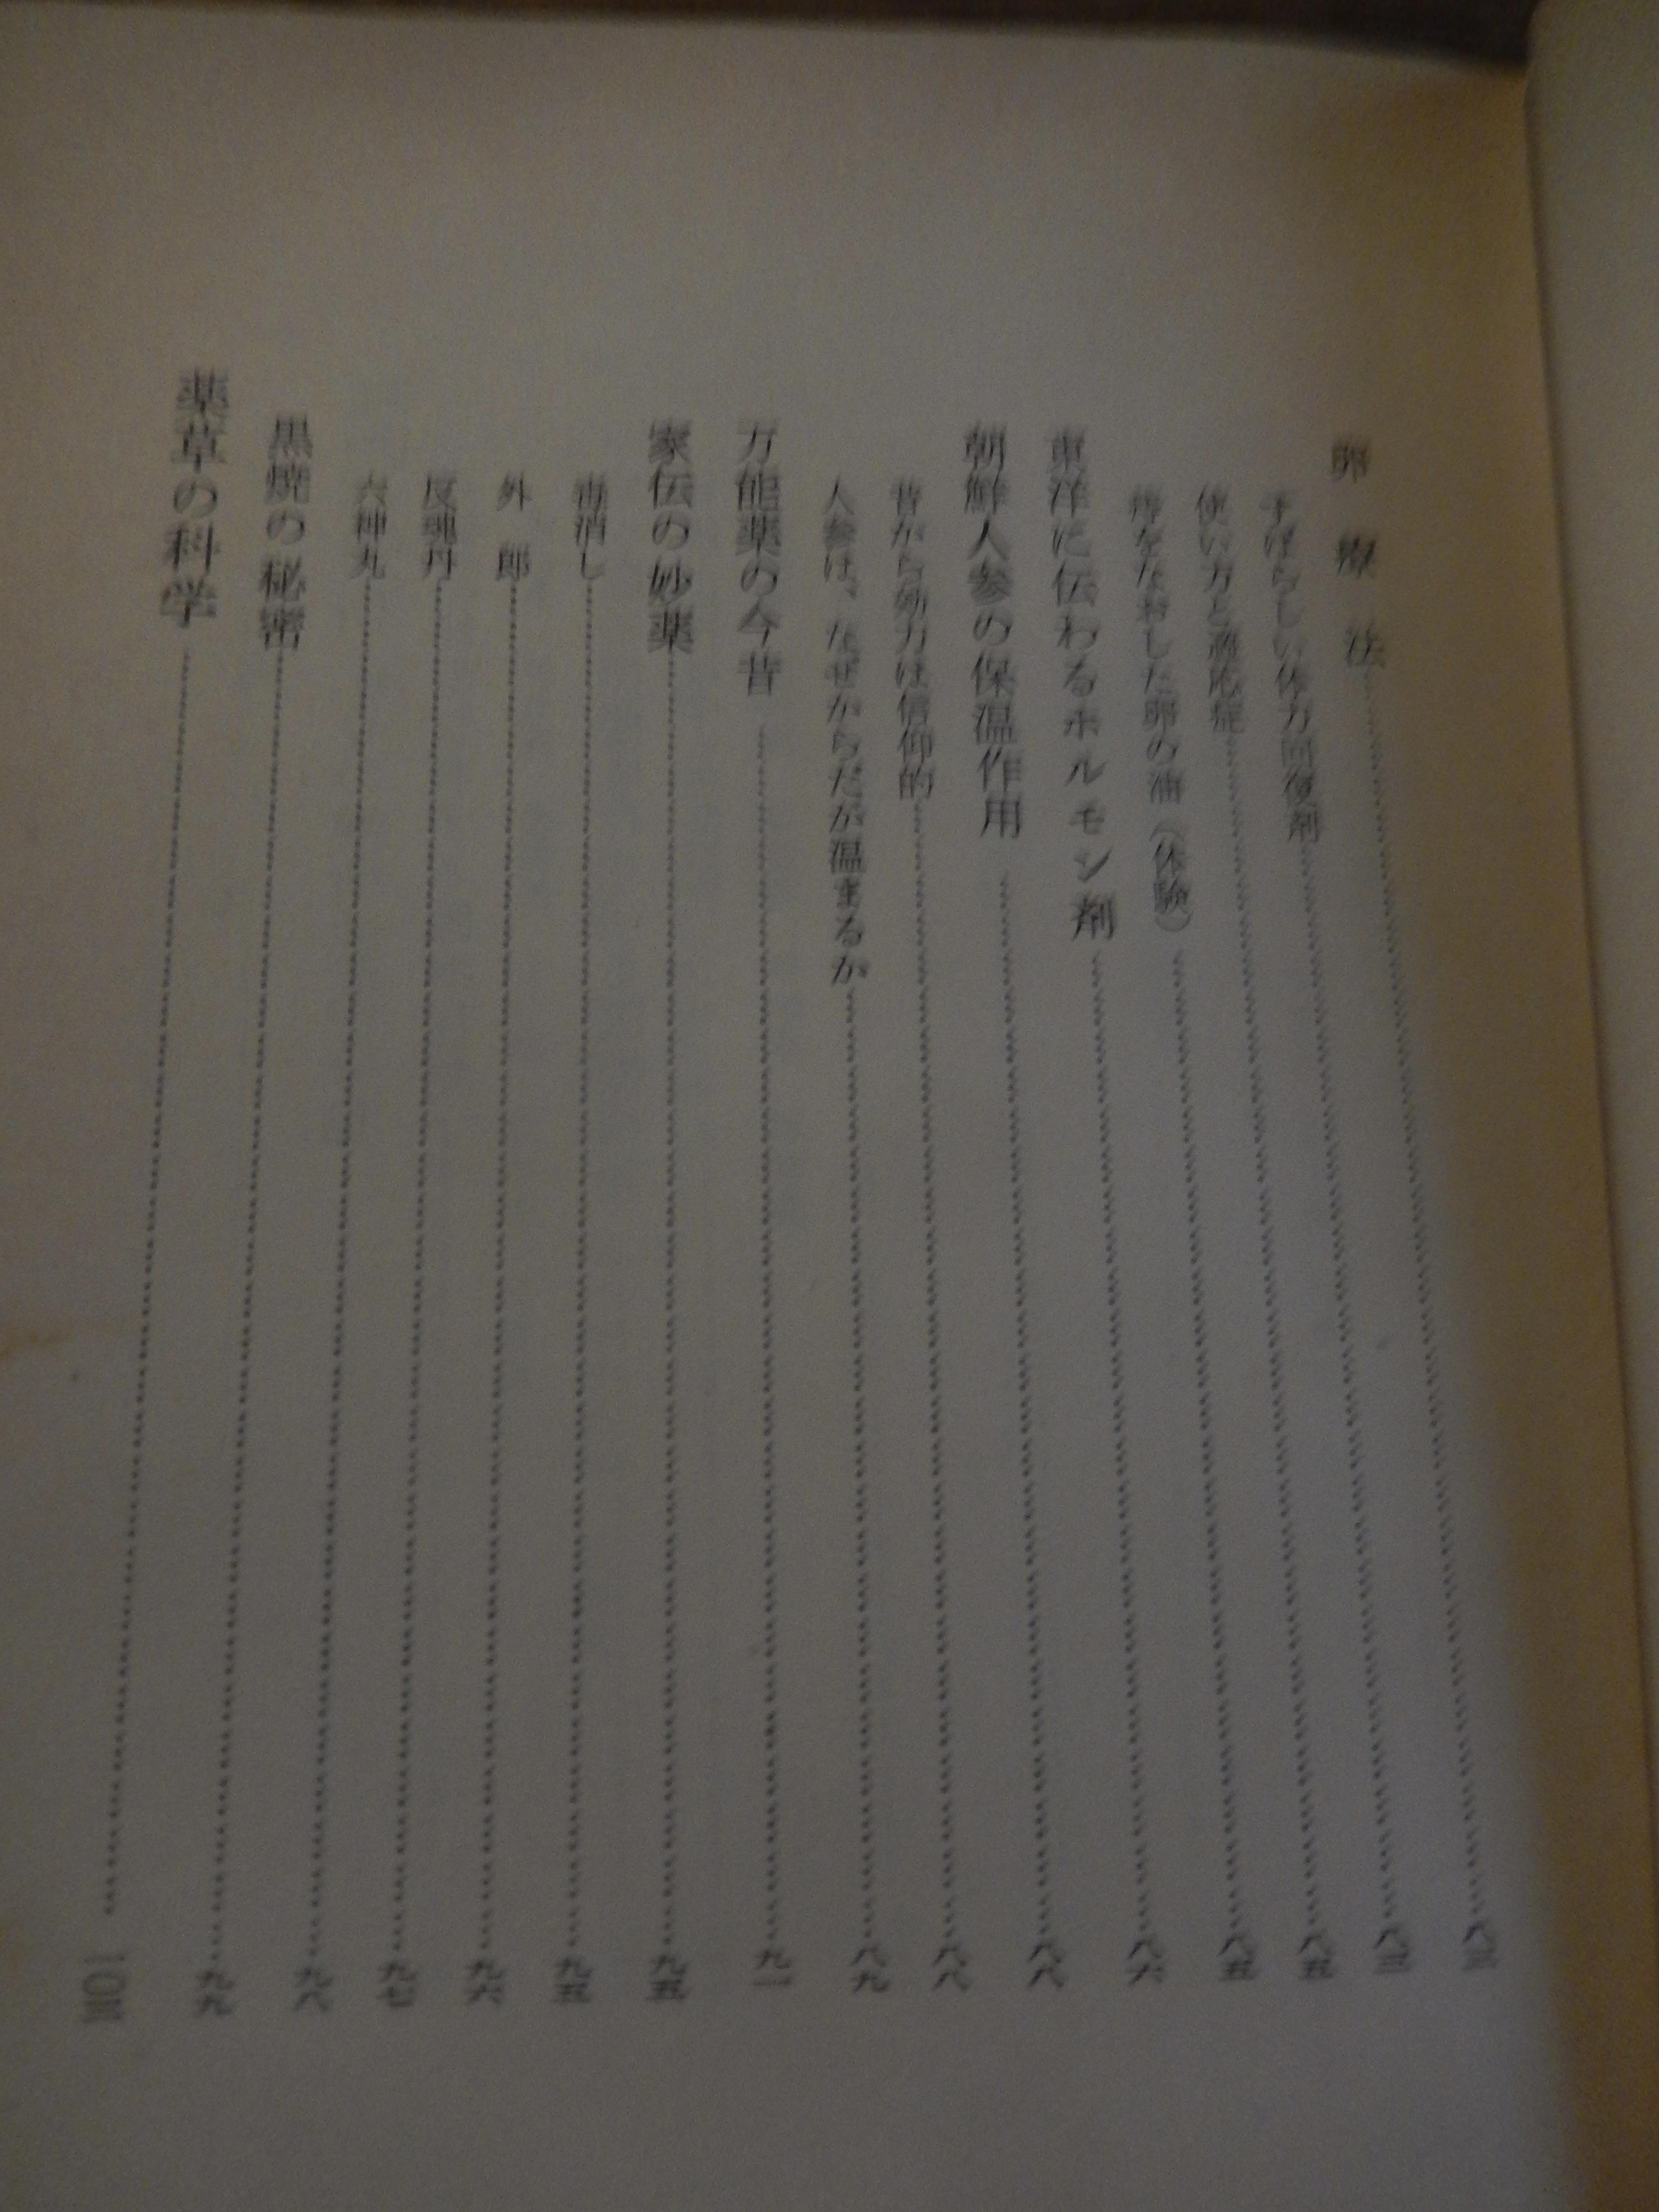 卵療法……八三
すばらしい体力回復剤……八三
使い方と適応症……八五
痔をなおした卵の油（体験）……八五
東洋に伝わるホルモン剤……八六
朝鮮人参の保温作用……八八
昔から効力は信仰的……八八
人参は、なぜからだが温まるか……八九
万能薬の今昔……九一
家伝の妙薬……九五
毒消し……九五
外郎……九六
反魂丹……九七
六神丸……九八
黒焼の秘密……九九
薬草の科学……一〇三